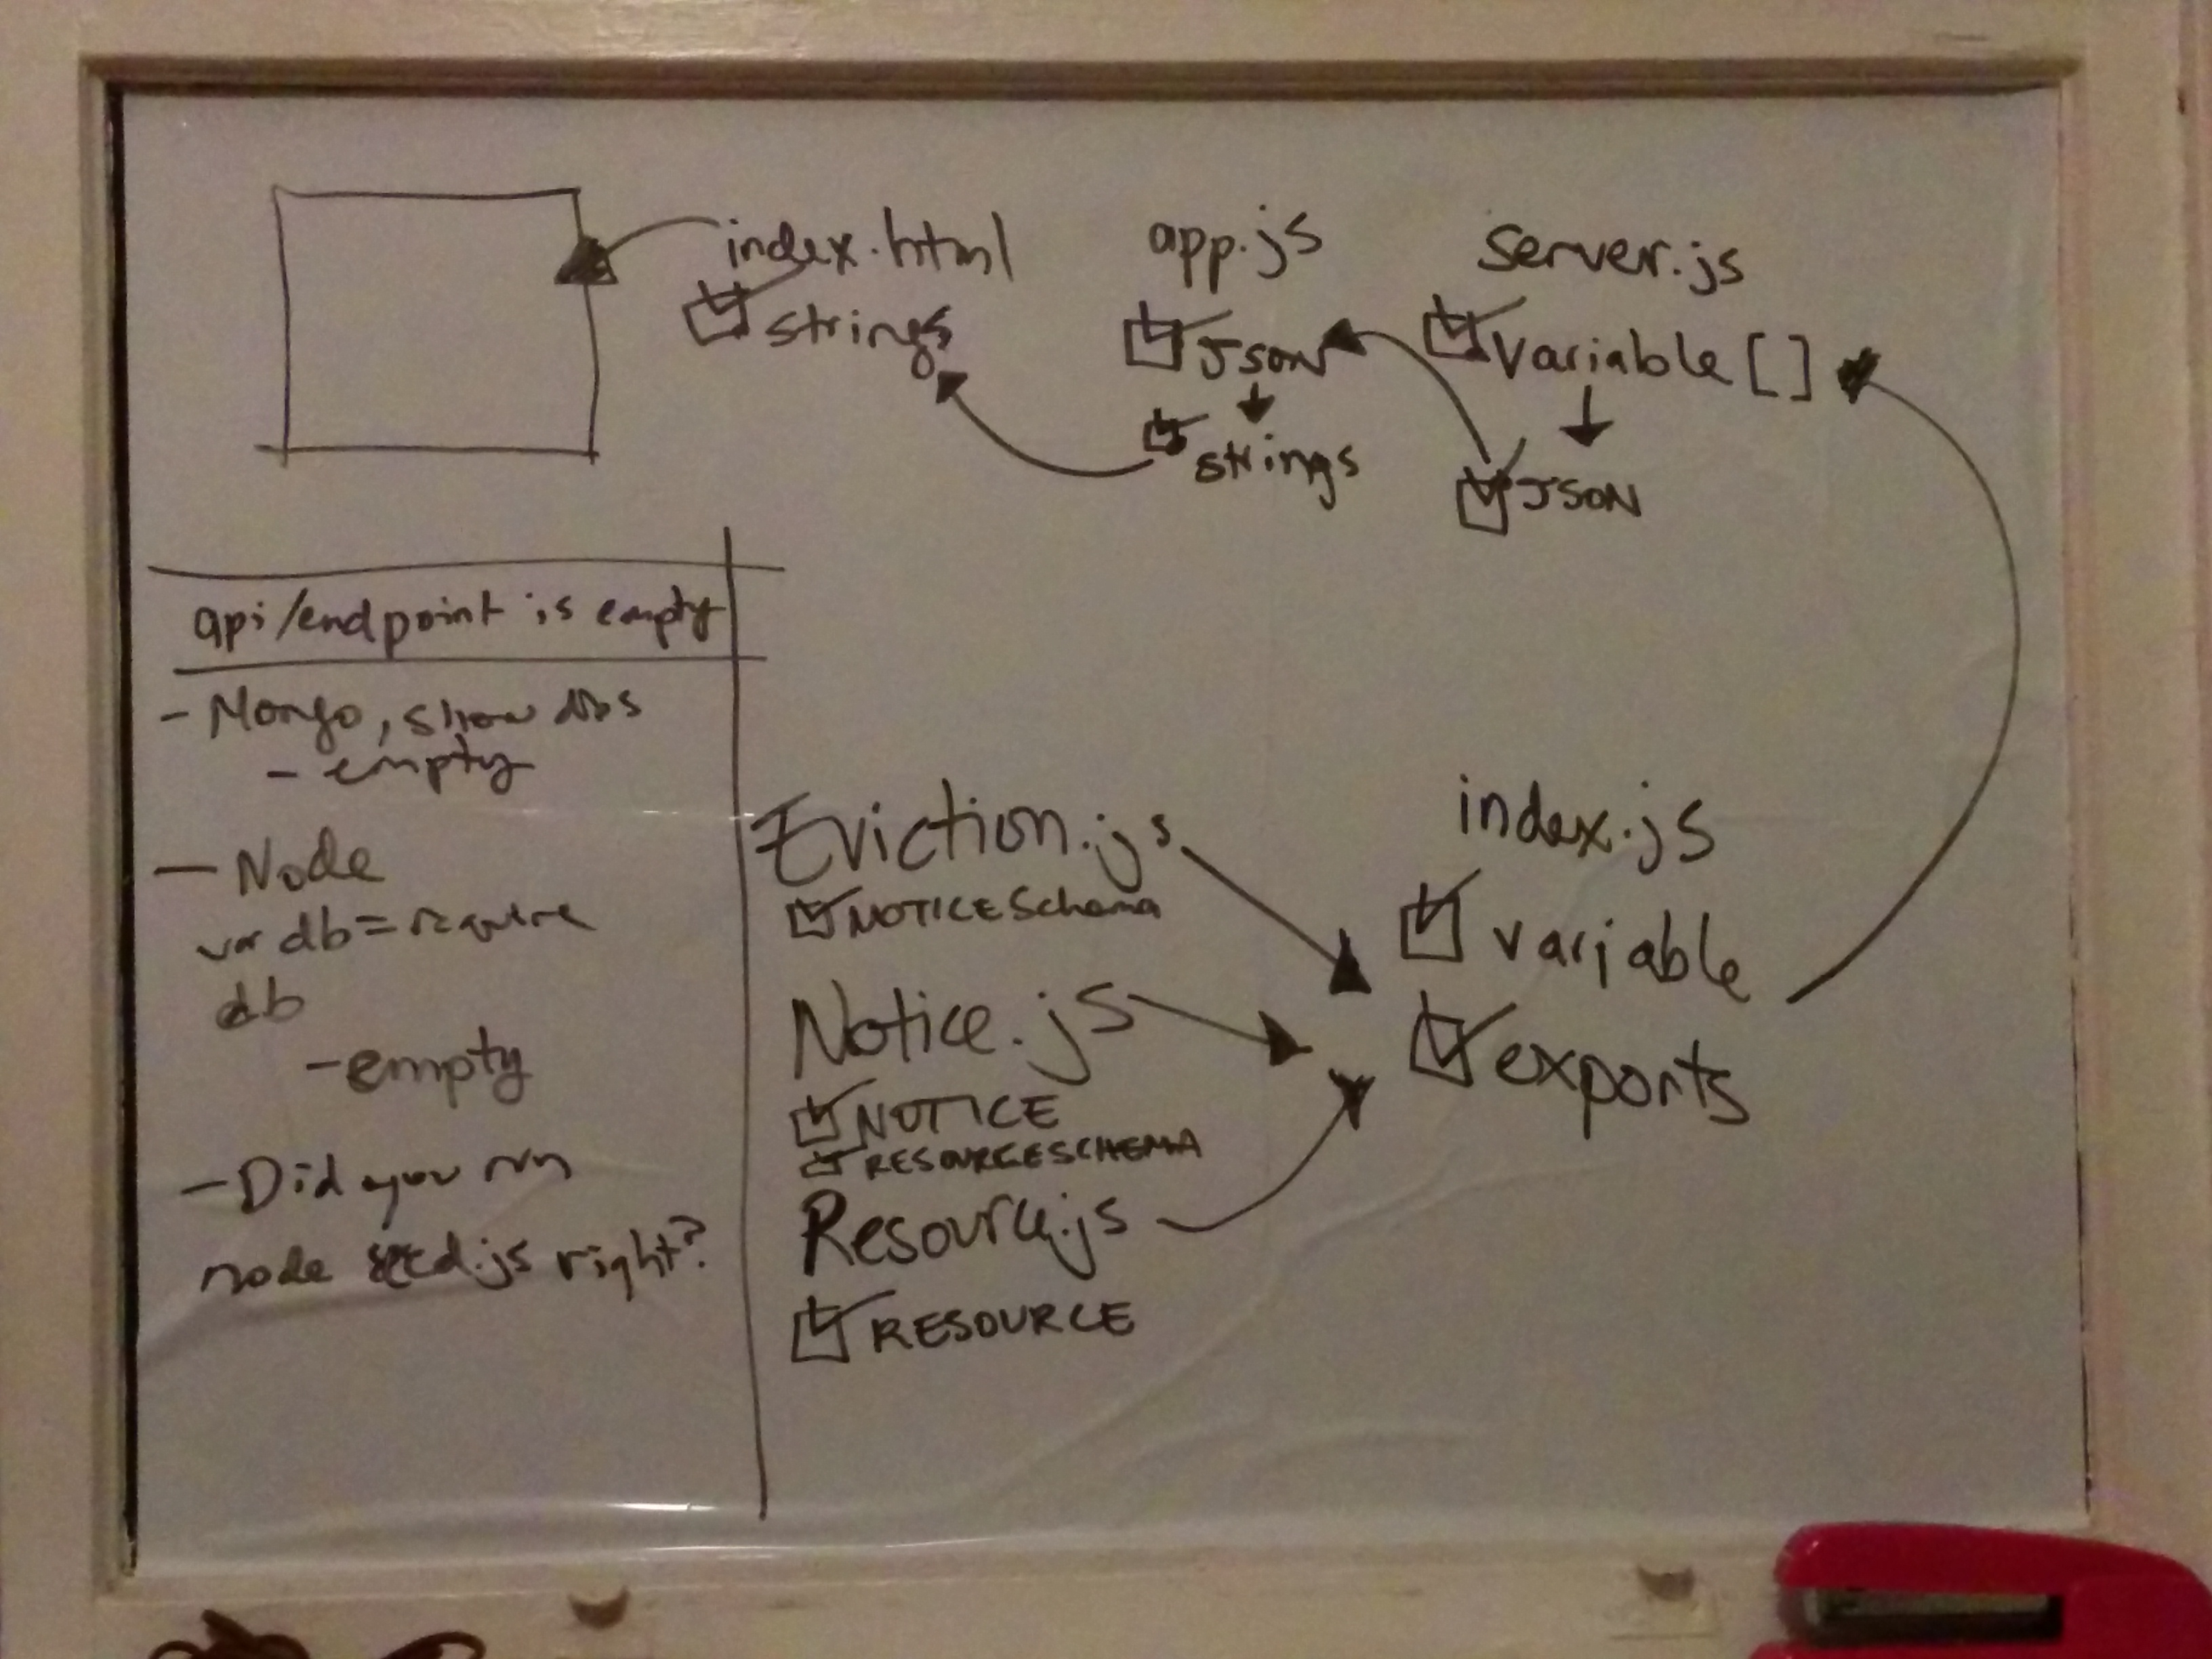 index.html
strings
app.js
JSON
strings
server.js
variable [ ]
JSON
api/endpoint is empty
- Mongo, show dbs
- empty
- Node
var db = require
db
- empty
- Did you run
node seed.js right?
Eviction.js
NOTICE Schema
Notice.js
NOTICE
RESOURCESCHEMA
Resource.js
RESOURCE
index.js
variable
exports